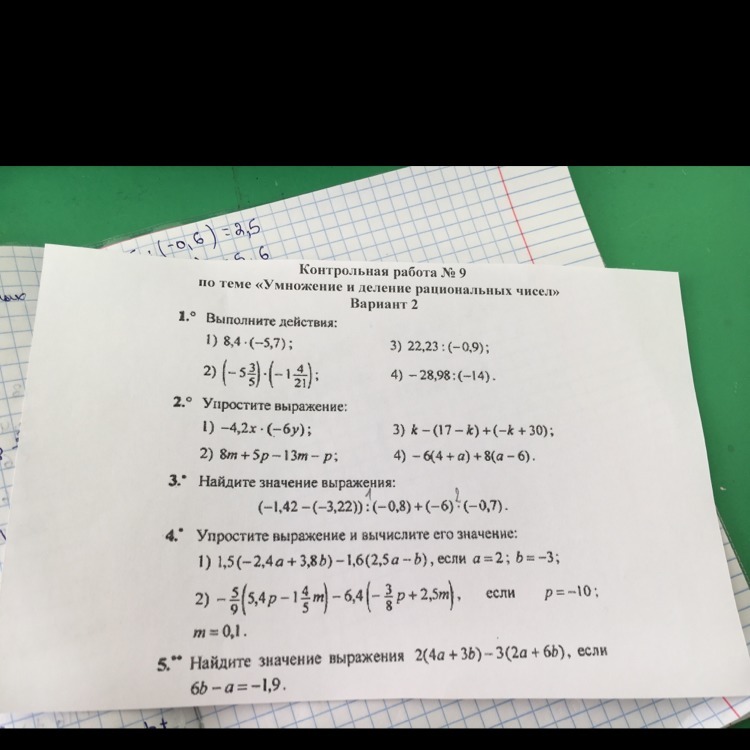 (-0,6) = 2,5
Контрольная работа № 9
по теме «Умножение и деление рациональных чисел»
Вариант 2
1.° Выполните действия:
1) 8,4 · (−5,7); 3) 22,23 : (−0,9);
2) (−5 3/5) · (−1 4/21); 4) −28,98 : (−14).
2.° Упростите выражение:
1) −4,2x · (−6y); 3) k − (17 − k) + (−k + 30);
2) 8m + 5p − 13m − p; 4) −6(4 + a) + 8(a − 6).
3.• Найдите значение выражения:
1 2
(−1,42 − (−3,22)) : (−0,8) + (−6) · (−0,7).
4.• Упростите выражение и вычислите его значение:
1) 1,5(−2,4a + 3,8b) − 1,6(2,5a − b), если a = 2; b = −3;
2) −5/9(5,4p − 1 4/5 m) − 6,4(−3/8 p + 2,5m), если p = −10;
m = 0,1.
5.•• Найдите значение выражения 2(4a + 3b) − 3(2a + 6b), если
6b − a = −1,9.